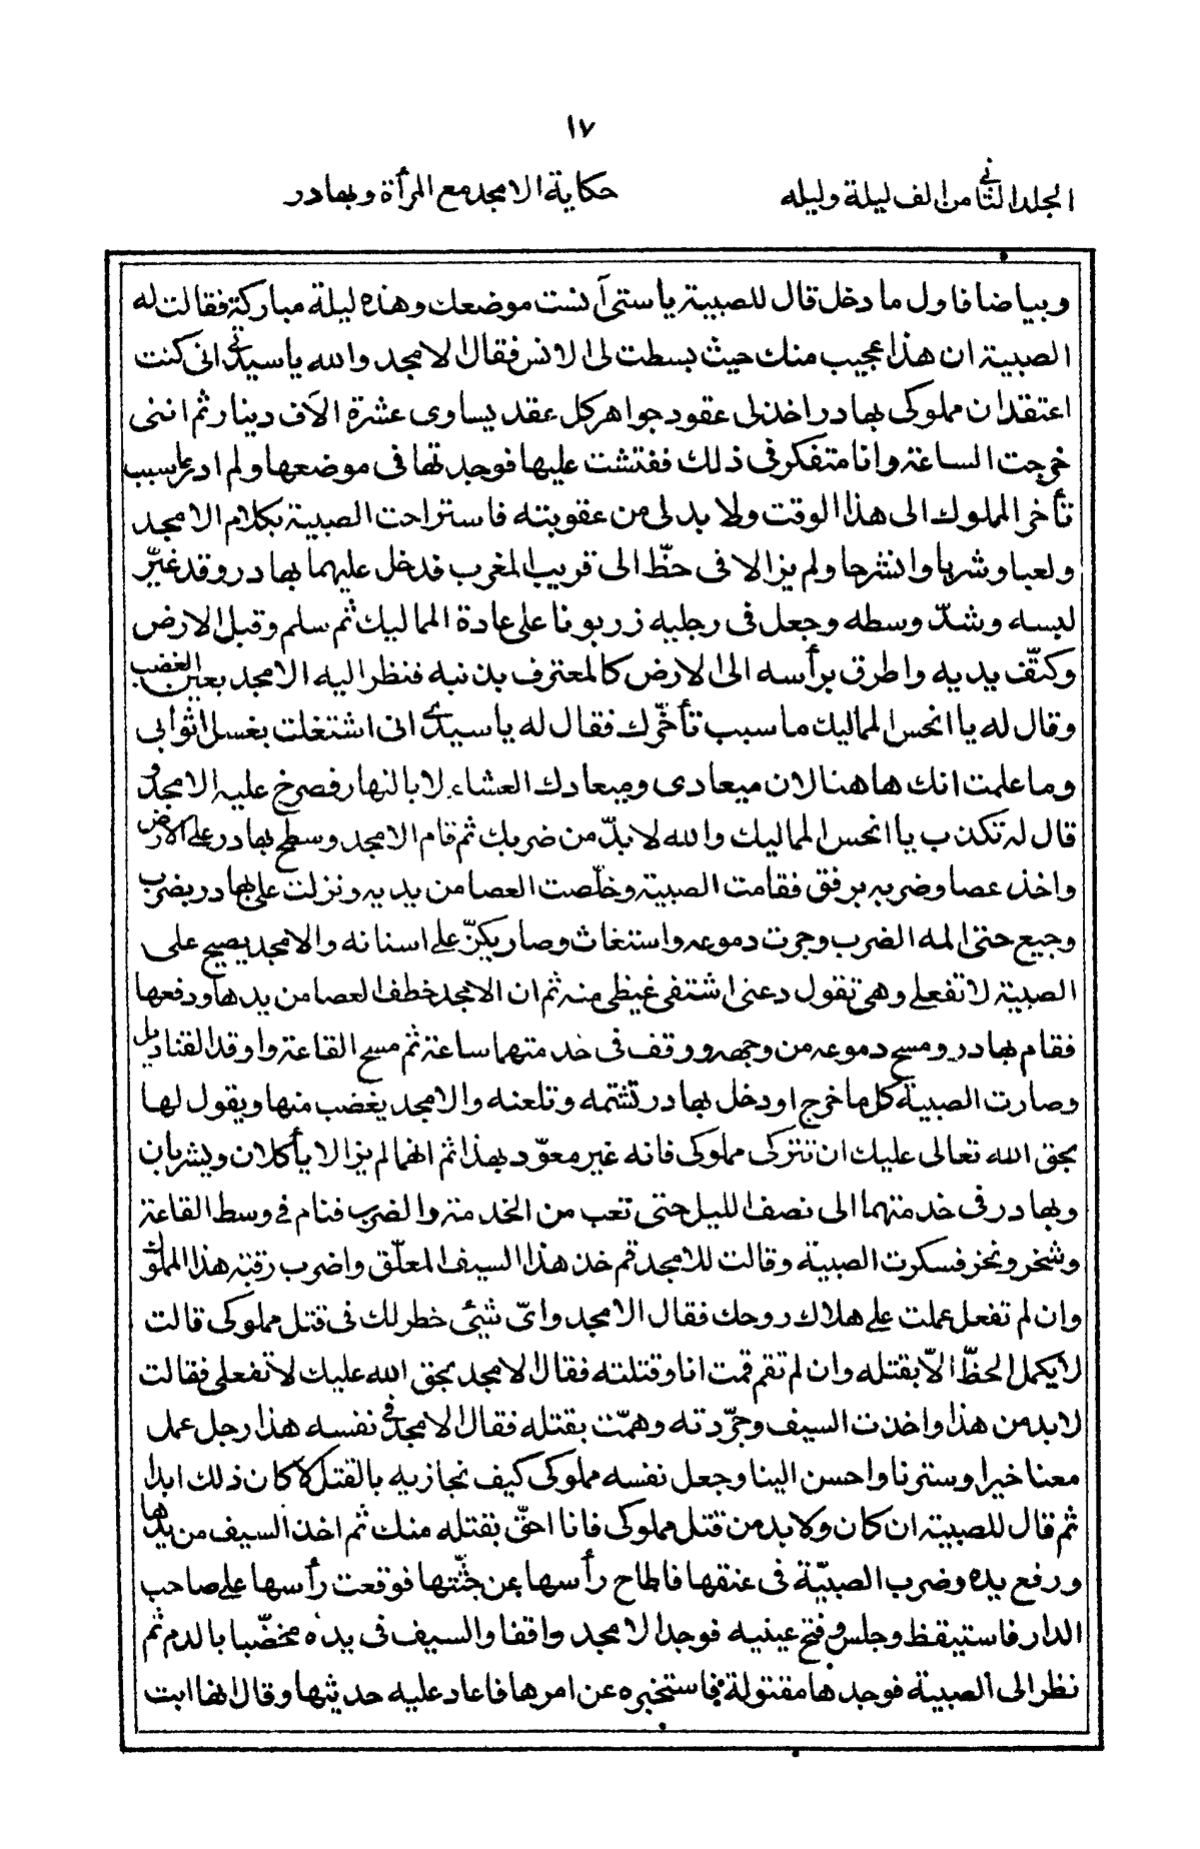 ١٧
المجلد الثاني من الف ليلة وليله
حكاية الامجد مع المرأة وبهادر
وبياضا فاول ما دخل قال للصبية يا ستى آنست موضعك وهذه ليلة مباركة فقالت له
الصبية ان هذا عجيب منك حيث بسطت لى الانس فقال الامجد والله يا سيدتي انى كنت
اعتقد ان مملوكى بهادر اخذ لى عقود جواهر كل عقد يساوى عشرة الآف دينار ثم اننى
خرجت الساعة وانا متفكر فى ذلك ففتشت عليها فوجدتها فى موضعها ولم ادر ما سبب
تأخر المملوك الى هذا الوقت ولا بد لى من عقوبته فاستراحت الصبية بكلام الامجد
ولعبا وشربا وانشرحا ولم يزالا فى حظّ الى قريب المغرب فدخل عليهما بهادر وقد غيّر
لبسه وشدّ وسطه وجعل فى رجليه زربونا على عادة المماليك ثم سلم وقبل الارض
وكتّف يديه واطرق برأسه الى الارض كالمعترف بذنبه فنظر اليه الامجد بعين الغضب
وقال له يا انحس المماليك ما سبب تأخّرك فقال له يا سيدي انى اشتغلت بغسل اثوابى
وما علمت انك هاهنا لان ميعادى وميعادك العشاء لا بالنهار فصرخ عليه الامجد و
قال له تكذب يا انحس المماليك والله لا بدّ من ضربك ثم قام الامجد وسطح بهادر على الارض
واخذ عصا وضربه برفق فقامت الصبية وخلّصت العصا من يديه ونزلت على بهادر بضرب
وجيع حتى المه الضرب وجرت دموعه واستغاث وصار يكزّ على اسنانه والامجد يصيح على
الصبية لا تفعلي وهى تقول دعنى اشتفى غيظى منه ثم ان الامجد خطف العصا من يدها ودفعها
فقام بهادر ومسح دموعه من وجهه ووقف فى خدمتهما ساعة ثم مسح القاعة واوقد القناديل
وصارت الصبية كل ما خرج او دخل بهادر تشتمه وتلعنه والامجد يغضب منها ويقول لها
بحق الله تعالى عليك ان تتركى مملوكى فانه غير معوّد بهذا ثم انهما لم يزالا يأكلان ويشربان
وبهادر فى خدمتهما الى نصف الليل حتى تعب من الخدمة والضرب فنام في وسط القاعة
وشخر ونخر فسكرت الصبية وقالت للامجد قم خذ هذا السيف المعلّق واضرب رقبة هذا المملوك
وان لم تفعل عملت على هلاك روحك فقال الامجد واىّ شيئى خطر لك فى قتل مملوكى قالت
لا يكمل الحظّ الّا بقتله وان لم تقم قمت انا وقتلته فقال الامجد بحق الله عليك لا تفعلى فقالت
لا بد من هذا واخذت السيف وجرّدته وهمّت بقتله فقال الامجد في نفسه هذا رجل عمل
معنا خيرا وسترنا واحسن الينا وجعل نفسه مملوكى كيف نجازيه بالقتل لا كان ذلك ابدا
ثم قال للصبية ان كان ولا بد من قتل مملوكى فانا احقّ بقتله منك ثم اخذ السيف من يدها
ورفع يده وضرب الصبيّة فى عنقها فاطاح رأسها عن جثّتها فوقعت رأسها على صاحب
الدار فاستيقظ وجلس وفتح عينيه فوجد الامجد واقفا والسيف فى يده مخضّبا بالدم ثم
نظر الى الصبية فوجدها مقتولة فاستخبره عن امرها فاعاد عليه حديثها وقال انها ابت